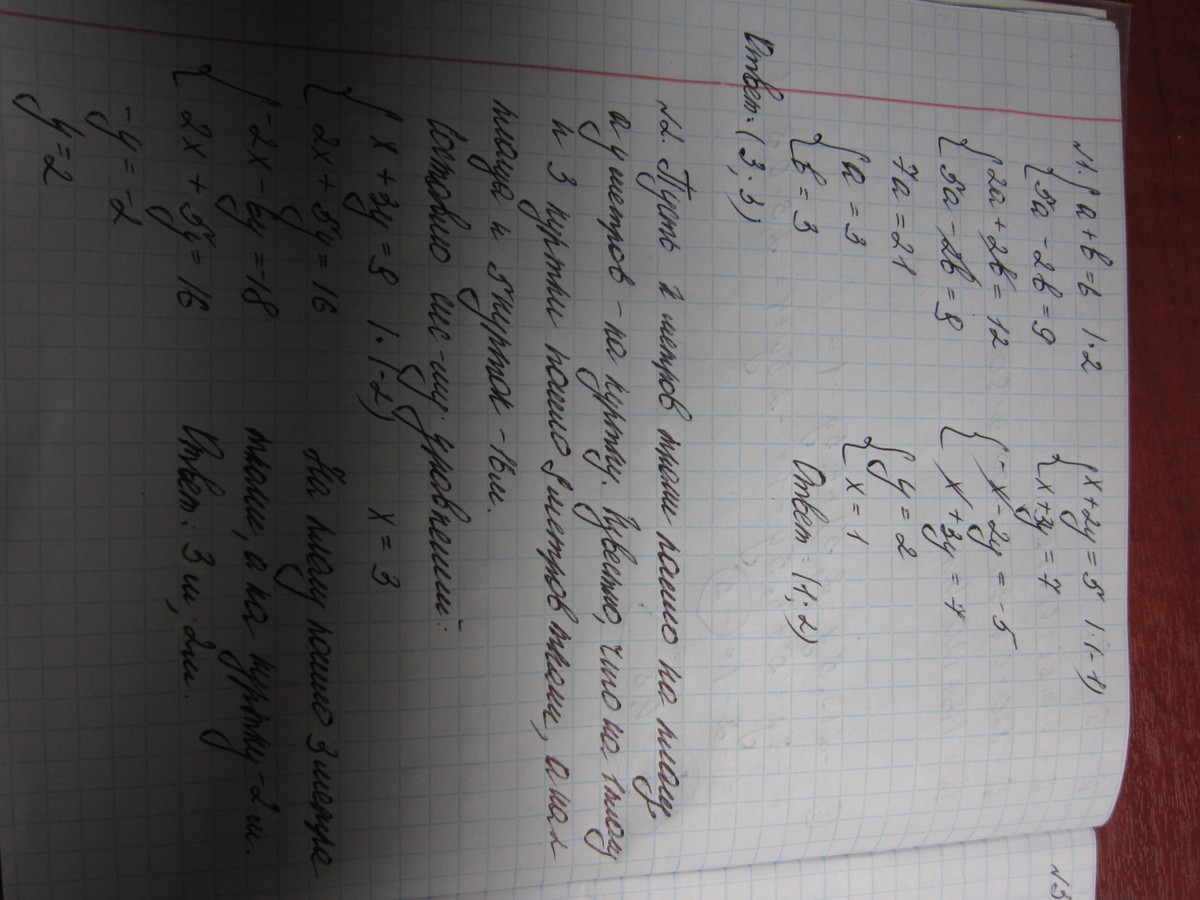 №1. { a + b = 6 | · 2
{ 5a - 2b = 9
{ 2a + 2b = 12
{ 5a - 2b = 9
7a = 21
{ a = 3
{ b = 3
Ответ: (3; 3)
{ x + 2y = 5 | · (-1)
{ x + 3y = 7
{ -x - 2y = -5
{ x + 3y = 7
{ y = 2
{ x = 1
Ответ: (1; 2)
№2. Пусть x метров ткани пошло на плащ,
а y метров - на куртку. Известно, что на 1 плащ
и 3 куртки пошло 9 метров ткани, а на 2
плаща и 5 курток - 16 м.
Составлю сис-му уравнений:
{ x + 3y = 9 | · (-2)
{ 2x + 5y = 16
{ -2x - 6y = -18
{ 2x + 5y = 16
-y = -2
y = 2
x = 3
На плащ пошло 3 метра
ткани, а на куртку - 2 м.
Ответ: 3 м, 2 м.
№3